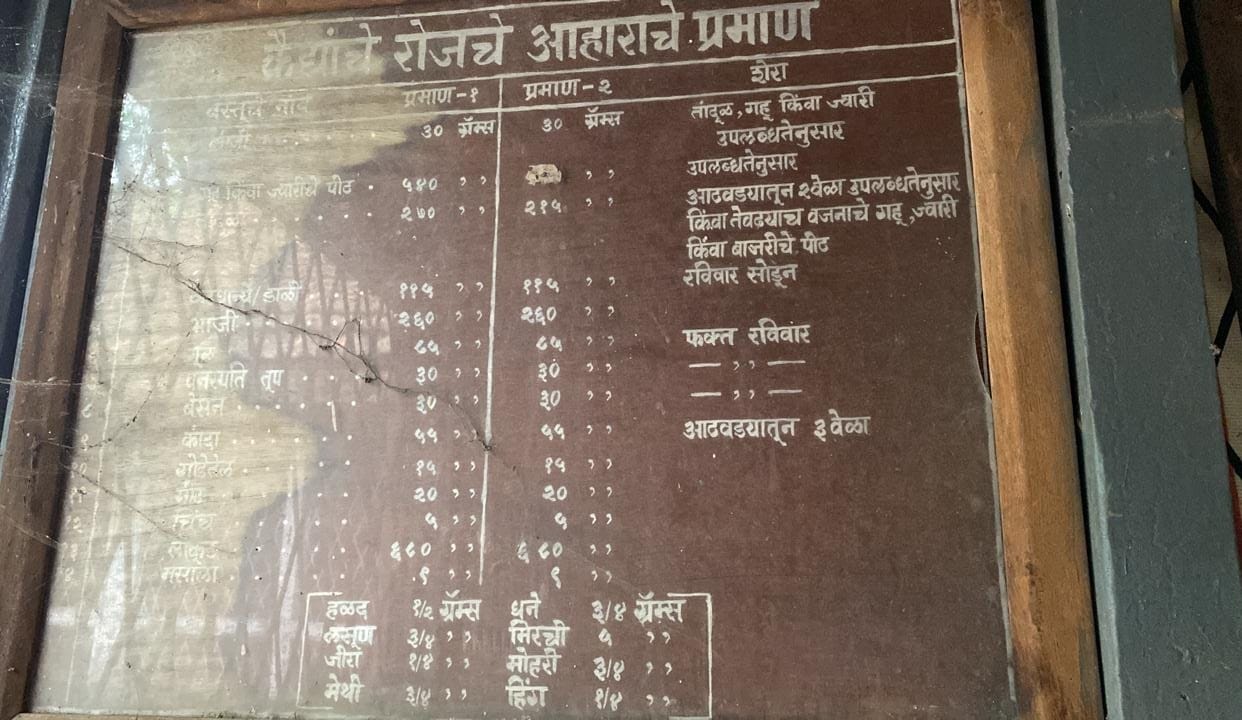 कैद्यांचे रोजचे आहाराचे प्रमाण
वस्तूचे नांव प्रमाण-१ प्रमाण-२ शेरा
३० ग्रॅम्स ३० ग्रॅम्स तांदूळ, गहू किंवा ज्वारी
उपलब्धतेनुसार
उपलब्धतेनुसार
किंवा ज्वारीचे पीठ ५४० ,, ,, आठवड्यातून २वेळा उपलब्धतेनुसार
२७० ,, २१५ ,, किंवा तेवढ्याच वजनाचे गहू, ज्वारी
किंवा बाजरीचे पीठ
/डाळी ११५ ,, ११५ ,, रविवार सोडून
भाजी २६० ,, २६० ,,
८५ ,, ८५ ,, फक्त रविवार
वनस्पति तूप ३० ,, ३० ,, — ,, —
८ बेसन ३० ,, ३० ,, — ,, —
कांदा ५५ ,, ५५ ,, आठवड्यातून ३वेळा
गोडेतेल १५ ,, १५ ,,
मीठ २० ,, २० ,,
चिंच ५ ,, ५ ,,
लाकूड ६८० ,, ६८० ,,
मसाला ९ ,, ९ ,,
हळद १/२ ग्रॅम्स धने ३/४ ग्रॅम्स
लसूण ३/४ ,, मिरची ५ ,,
जीरा १/४ ,, मोहरी ३/४ ,,
मेथी ३/४ ,, हिंग १/४ ,,